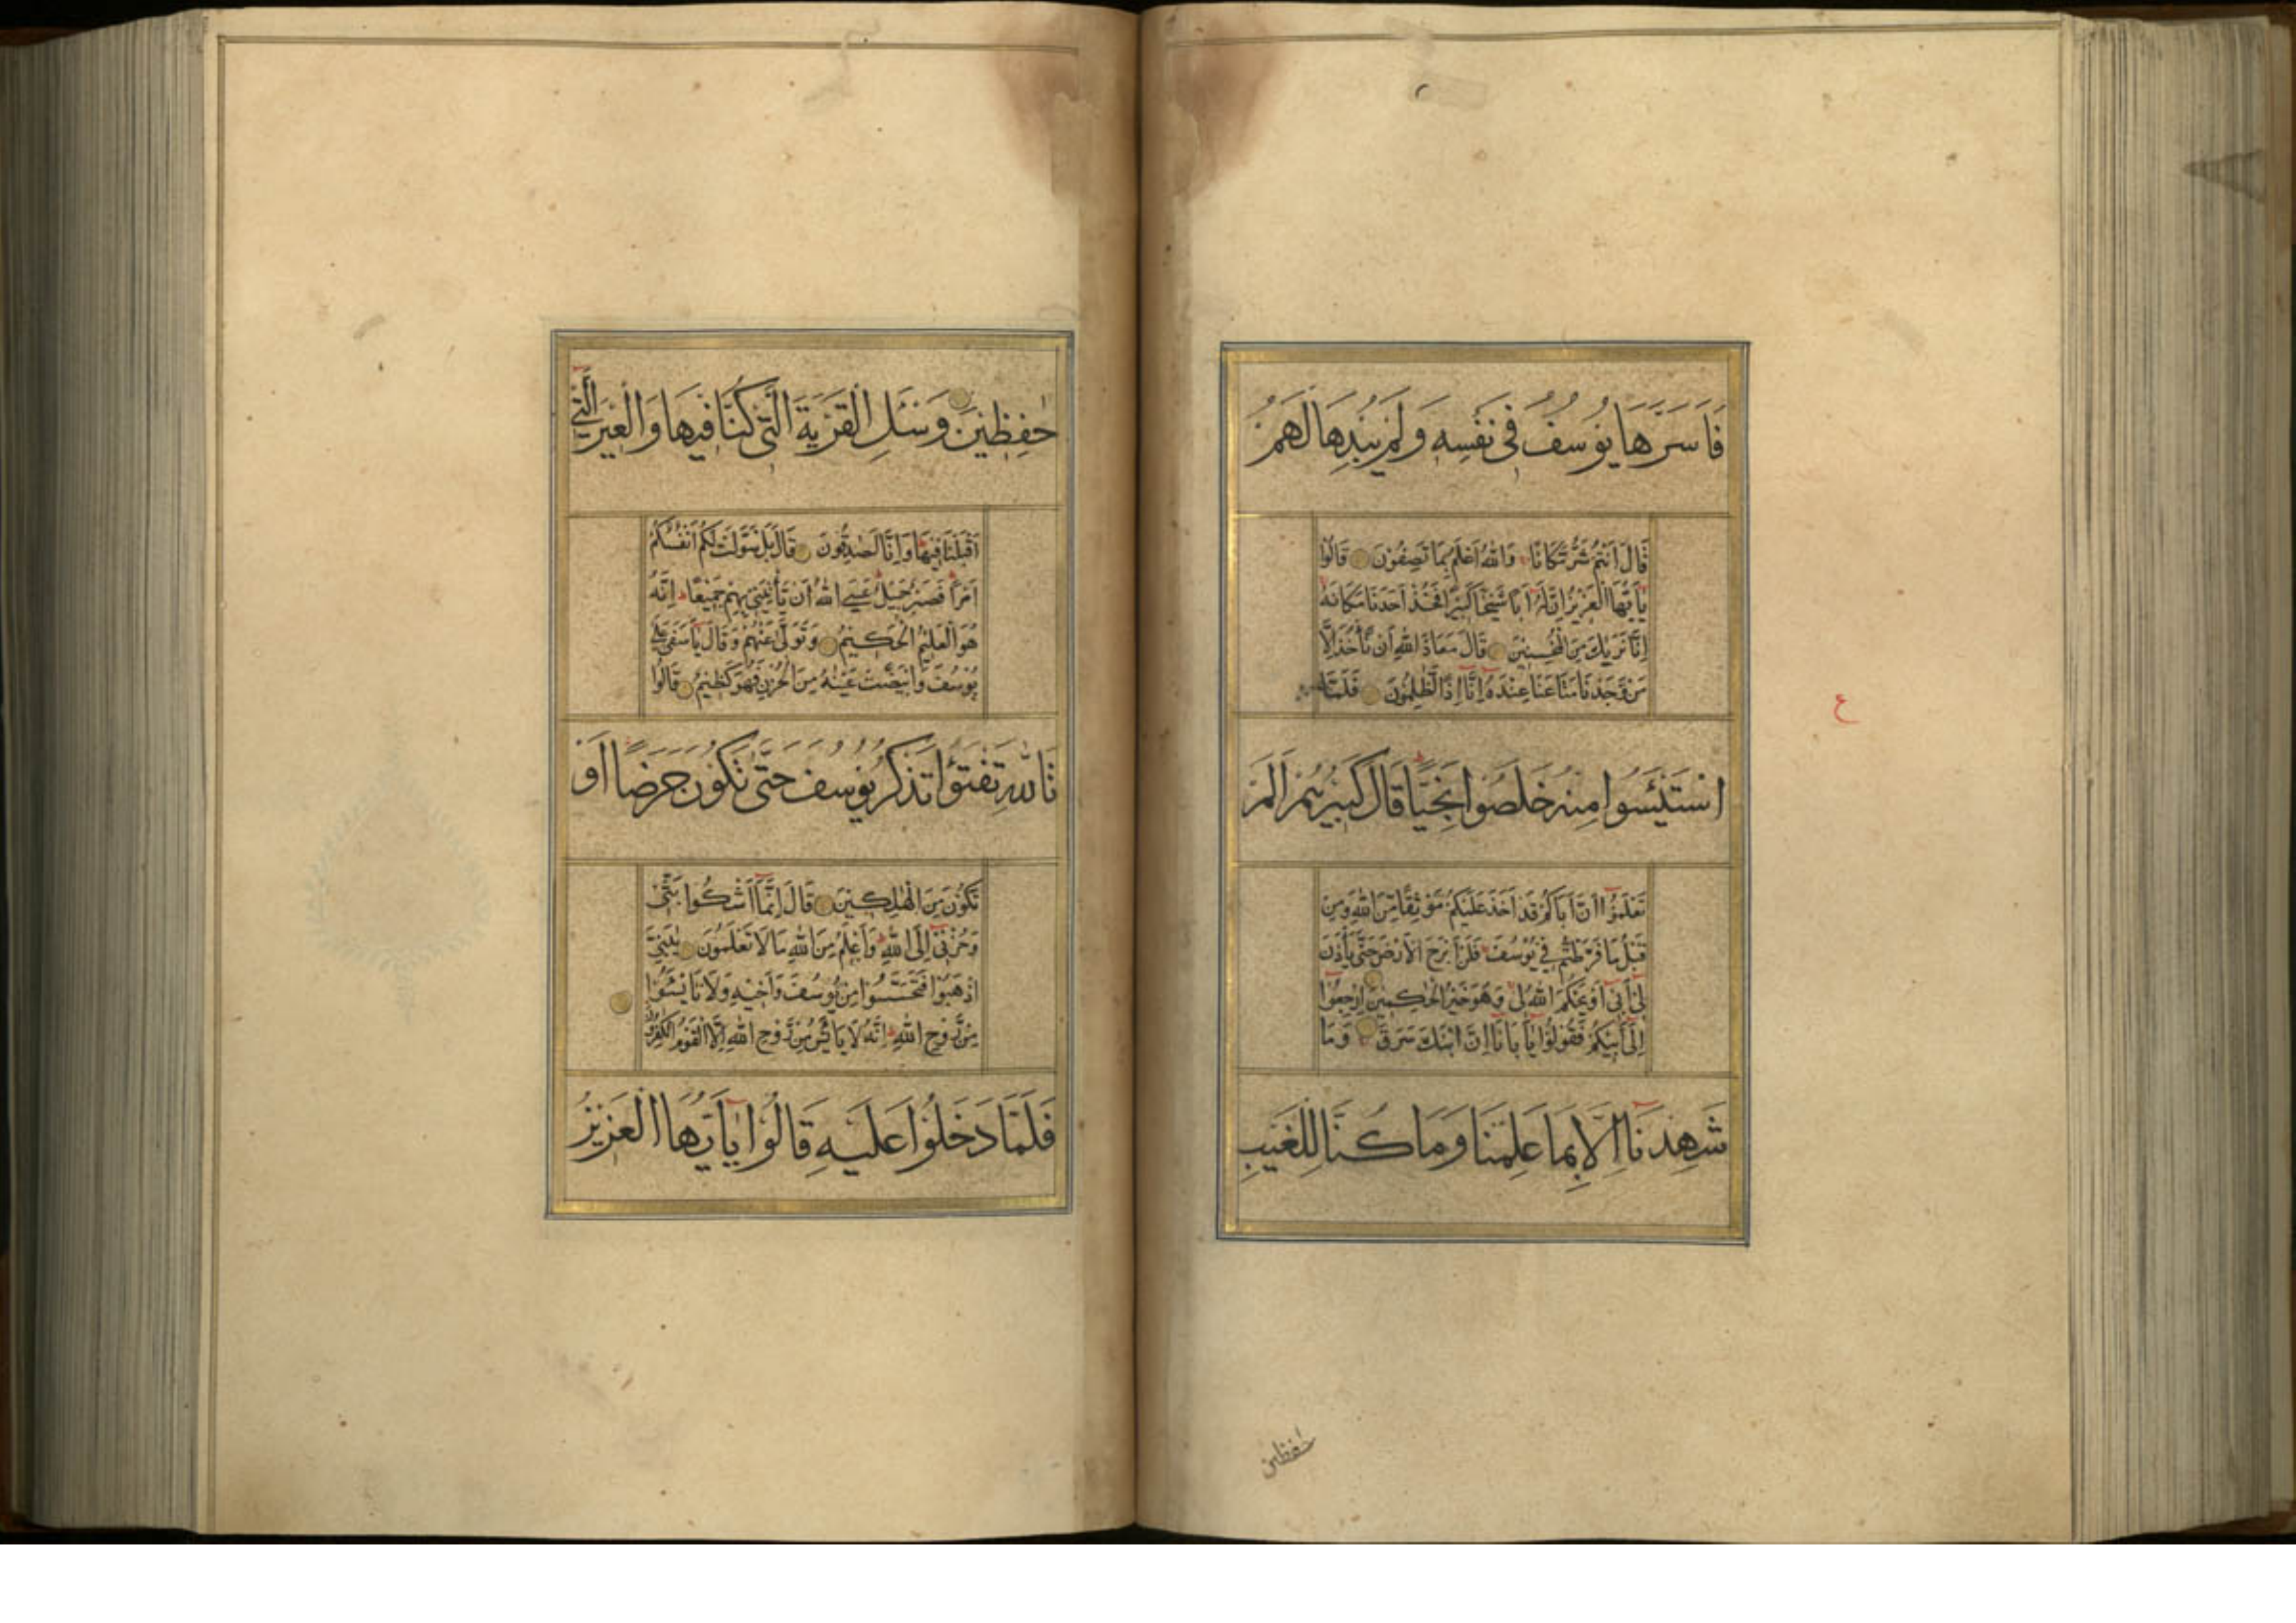 فَاَسَرَّهَا يُوسُفُ فِى نَفْسِهٖ وَلَمْ يُبْدِهَا لَهُمْ
قَالَ اَنْتُمْ شَرٌّ مَّكَانًا وَاللهُ اَعْلَمُ بِمَا تَصِفُوْنَ قَالُوْا
يٰٓاَيُّهَا الْعَزِيْزُ اِنَّ لَهٗٓ اَبًا شَيْخًا كَبِيْرًا فَخُذْ اَحَدَنَا مَكَانَهٗ
اِنَّا نَرٰىكَ مِنَ الْمُحْسِنِيْنَ قَالَ مَعَاذَ اللهِ اَنْ نَّأْخُذَ اِلَّا
مَنْ وَّجَدْنَا مَتَاعَنَا عِنْدَهٗٓ اِنَّٓا اِذًا لَّظٰلِمُوْنَ فَلَمَّا
اسْتَيْئَسُوا مِنْهُ خَلَصُوا نَجِيًّا قَالَ كَبِيْرُهُمْ اَلَمْ
تَعْلَمُوْٓا اَنَّ اَبَاكُمْ قَدْ اَخَذَ عَلَيْكُمْ مَّوْثِقًا مِّنَ اللهِ وَمِنْ
قَبْلُ مَا فَرَّطْتُّمْ فِيْ يُوْسُفَ فَلَنْ اَبْرَحَ الْاَرْضَ حَتّٰى يَأْذَنَ
لِيْٓ اَبِيْٓ اَوْ يَحْكُمَ اللهُ لِيْ وَهُوَ خَيْرُ الْحٰكِمِيْنَ اِرْجِعُوْٓا
اِلٰٓى اَبِيْكُمْ فَقُوْلُوْا يٰٓاَبَانَٓا اِنَّ ابْنَكَ سَرَقَ وَمَا
شَهِدْنَٓا اِلَّا بِمَا عَلِمْنَا وَمَا كُنَّا لِلْغَيْبِ
حٰفظين
ع
حٰفِظِيْنَ وَسْـَٔلِ الْقَرْيَةَ الَّتِى كُنَّا فِيْهَا وَالْعِيْرَ الَّتِىٓ
اَقْبَلْنَا فِيْهَا وَاِنَّا لَصٰدِقُوْنَ قَالَ بَلْ سَوَّلَتْ لَكُمْ اَنْفُسُكُمْ
اَمْرًا فَصَبْرٌ جَمِيْلٌ عَسَى اللهُ اَنْ يَّأْتِيَنِيْ بِهِمْ جَمِيْعًا اِنَّهٗ
هُوَ الْعَلِيْمُ الْحَكِيْمُ وَتَوَلّٰى عَنْهُمْ وَقَالَ يٰٓاَسَفٰى عَلٰى
يُوْسُفَ وَابْيَضَّتْ عَيْنٰهُ مِنَ الْحُزْنِ فَهُوَ كَظِيْمٌ قَالُوْا
تَاللهِ تَفْتَؤُا تَذْكُرُ يُوسُفَ حَتّٰى تَكُونَ حَرَضًا اَوْ
تَكُوْنَ مِنَ الْهٰلِكِيْنَ قَالَ اِنَّمَٓا اَشْكُوْا بَثِّيْ
وَحُزْنِيْٓ اِلَى اللهِ وَاَعْلَمُ مِنَ اللهِ مَا لَا تَعْلَمُوْنَ يٰبَنِيَّ
اذْهَبُوْا فَتَحَسَّسُوْا مِنْ يُّوْسُفَ وَاَخِيْهِ وَلَا تَايْئَسُوْا
مِنْ رَّوْحِ اللهِ اِنَّهٗ لَا يَايْئَسُ مِنْ رَّوْحِ اللهِ اِلَّا الْقَوْمُ الْكٰفِرُوْنَ
فَلَمَّا دَخَلُوْا عَلَيْهِ قَالُوْا يٰٓاَيُّهَا الْعَزِيْزُ